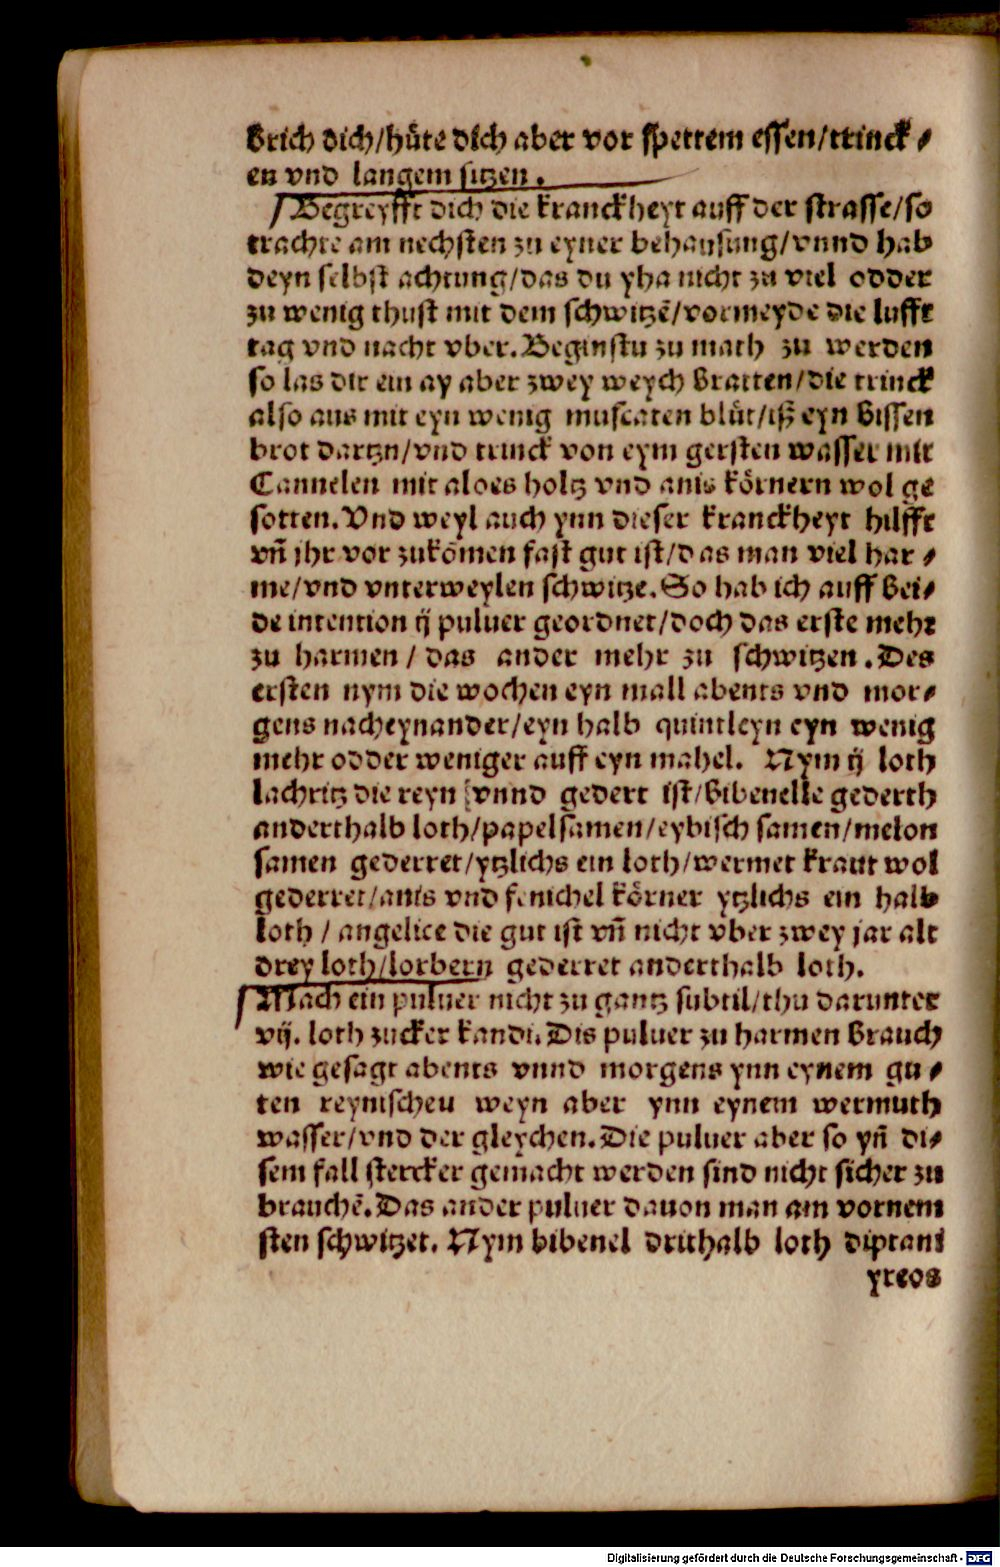 brich dich/hüte dich aber vor spettem essen/trinck⸗
en vnd langem sitzen.
Begreyfft dich die kranckheyt auff der strasse/so
trachte am nechsten zu eyner behausung/vnnd hab
deyn selbst achtung/das du yha nicht zu viel odder
zu wenig thust mit dem schwitzē/vormeyde die lufft
tag vnd nacht vber. Beginstu zu math zu werden
so las dir ein ay aber zwey weych bratten/die trinck
also aus mit eyn wenig muscaten blüt/iß eyn bissen
brot dartzu/vnd trinck von eym gersten wasser mit
Cannelen mit aloes holtz vnd anis körnern wol ge
sotten. Vnd weyl auch ynn dieser kranckheyt hilfft
vñ jhr vor zukōmen fast gut ist/das man viel har⸗
me/vnd vnterweylen schwitze. So hab ich auff bei⸗
de intention ij puluer geordnet/doch das erste mehr
zu harmen/ das ander mehr zu schwitzen. Des
ersten nym die wochen eyn mall abents vnd mor⸗
gens nacheynander/eyn halb quintleyn eyn wenig
mehr odder weniger auff eyn mahel. Nym ij loth
lachritz die reyn vnnd gedert ist/bibenelle gederth
anderthalb loth/papelsamen/eybisch samen/melon
samen gederret/ytzlichs ein loth/wermet kraut wol
gederret/anis vnd fenichel körner ytzlichs ein halb
loth / angelice die gut ist vñ nicht vber zwey jar alt
drey loth/lorbern gederret anderthalb loth.
Mach ein puluer nicht zu gantz subtil/thu darunter
vij. loth zucker kandi. Dis puluer zu harmen brauch
wie gesagt abents vnnd morgens ynn eynem gu⸗
ten reynischeu weyn aber ynn eynem wermuth
wasser/vnd der gleychen. Die puluer aber so yñ di⸗
sem fall stercker gemacht werden sind nicht sicher zu
brauchē. Das ander puluer dauon man am vornem
sten schwitzet. Nym bibenel drithalb loth diptani
yreos
Digitalisierung gefördert durch die Deutsche Forschungsgemeinschaft - DFG